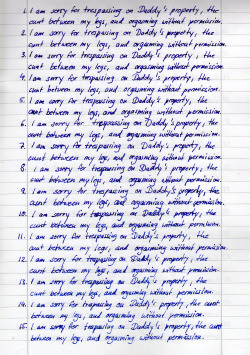 1. I am sorry for trespassing on Daddy's property, the
cunt between my legs, and orgasming without permission.
2. I am sorry for trespassing on Daddy's property, the
cunt between my legs, and orgasming without permission.
3. I am sorry for trespassing on Daddy's property, the
cunt between my legs, and orgasming without permission.
4. I am sorry for trespassing on Daddy's property, the
cunt between my legs, and orgasming without permission.
5. I am sorry for trespassing on Daddy's property, the
cunt between my legs, and orgasming without permission.
6. I am sorry for trespassing on Daddy's property, the
cunt between my legs, and orgasming without permission.
7. I am sorry for trespassing on Daddy's property, the
cunt between my legs, and orgasming without permission.
8. I am sorry for trespassing on Daddy's property, the
cunt between my legs, and orgasming without permission.
9. I am sorry for trespassing on Daddy's property, the
cunt between my legs, and orgasming without permission.
10. I am sorry for trespassing on Daddy's property, the
cunt between my legs, and orgasming without permission.
11. I am sorry for trespassing on Daddy's property, the
cunt between my legs, and orgasming without permission.
12. I am sorry for trespassing on Daddy's property, the
cunt between my legs, and orgasming without permission.
13. I am sorry for trespassing on Daddy's property, the
cunt between my legs, and orgasming without permission.
14. I am sorry for trespassing on Daddy's property, the cunt
between my legs, and orgasming without permission.
15. I am sorry for trespassing on Daddy's property, the cunt
between my legs, and orgasming without permission.